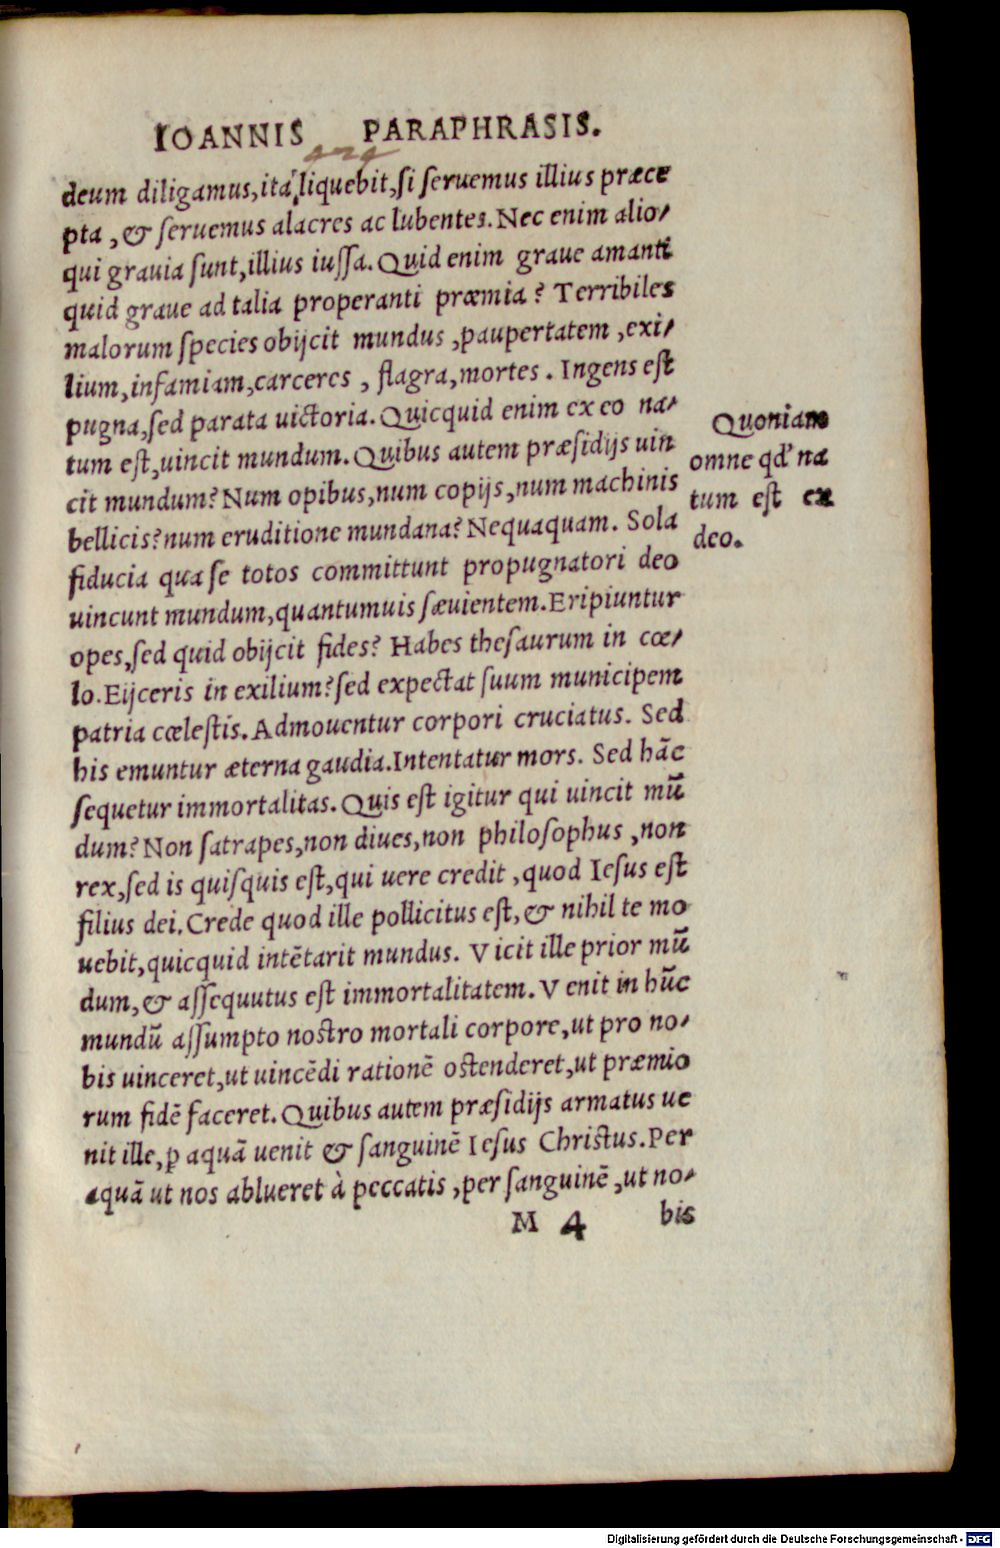 IOANNIS PARAPHRASIS.
deum diligamus, ita liquebit, si seruemus illius præce
pta, & seruemus alacres ac lubentes. Nec enim alio-
qui grauia sunt, illius iussa. Quid enim graue amanti
quid graue ad talia properanti præmia? Terribiles
malorum species obijcit mundus, paupertatem, exi-
lium, infamiam, carceres, flagra, mortes. Ingens est
pugna, sed parata uictoria. Quicquid enim ex eo na-
tum est, uincit mundum. Quibus autem præsidijs uin
cit mundum? Num opibus, num copijs, num machinis
bellicis? num eruditione mundana? Nequaquam. Sola
fiducia qua se totos committunt propugnatori deo
uincunt mundum, quantumuis sæuientem. Eripiuntur
opes, sed quid obijcit fides? Habes thesaurum in cœ-
lo. Eijceris in exilium? sed expectat suum municipem
patria cœlestis. Admouentur corpori cruciatus. Sed
his emuntur æterna gaudia. Intentatur mors. Sed hāc
sequetur immortalitas. Quis est igitur qui uincit mū
dum? Non satrapes, non diues, non philosophus, non
rex, sed is quisquis est, qui uere credit, quod Iesus est
filius dei. Crede quod ille pollicitus est, & nihil te mo
uebit, quicquid intētarit mundus. Vicit ille prior mū
dum, & assequutus est immortalitatem. Venit in hūc
mundū assumpto nostro mortali corpore, ut pro no-
bis uinceret, ut uincēdi rationē ostenderet, ut præmio
rum fidē faceret. Quibus autem præsidijs armatus ue
nit ille, ꝑ aquā uenit & sanguinē Iesus Christus. Per
aquā ut nos ablueret à peccatis, per sanguinē, ut no-
M 4 bis
Quoniam
omne qd' na
tum est ex
deo.
Digitalisierung gefördert durch die Deutsche Forschungsgemeinschaft - DFG